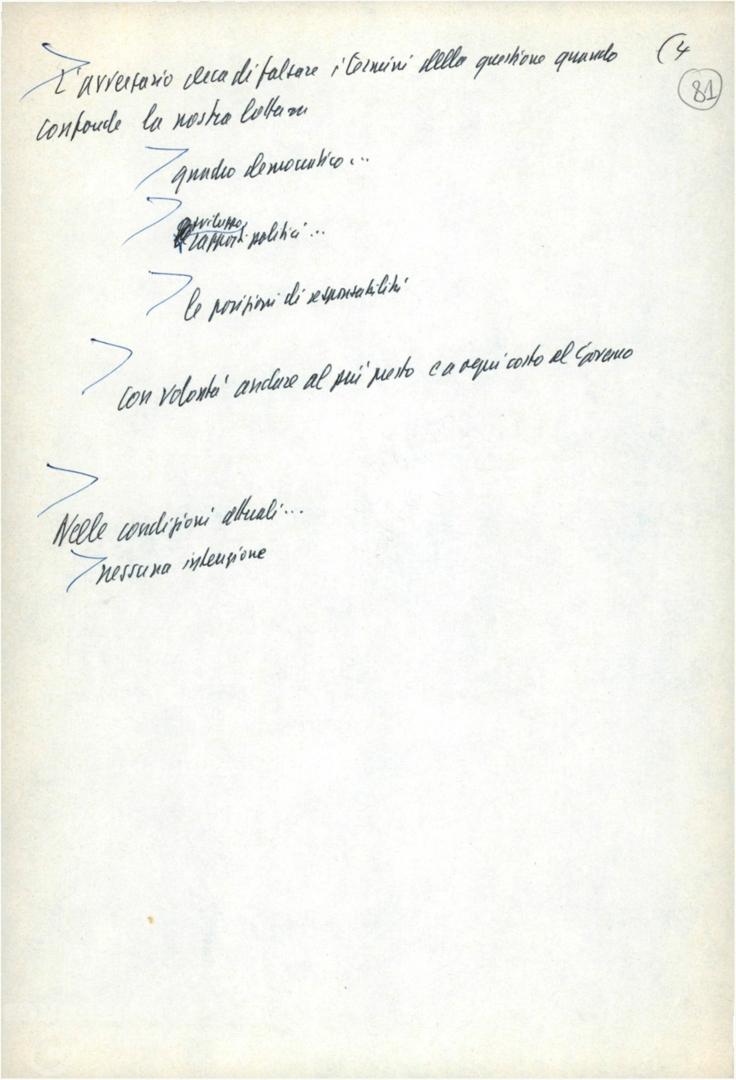 (4
81
L'avversario cerca di falsare i termini della questione quando
confonde la nostra lotta
quadro democratico...
sviluppo
rapporti politici...
le posizioni di responsabilità
con volontà andare al più presto e a ogni costo al Governo
Nelle condizioni attuali...
nessuna intenzione